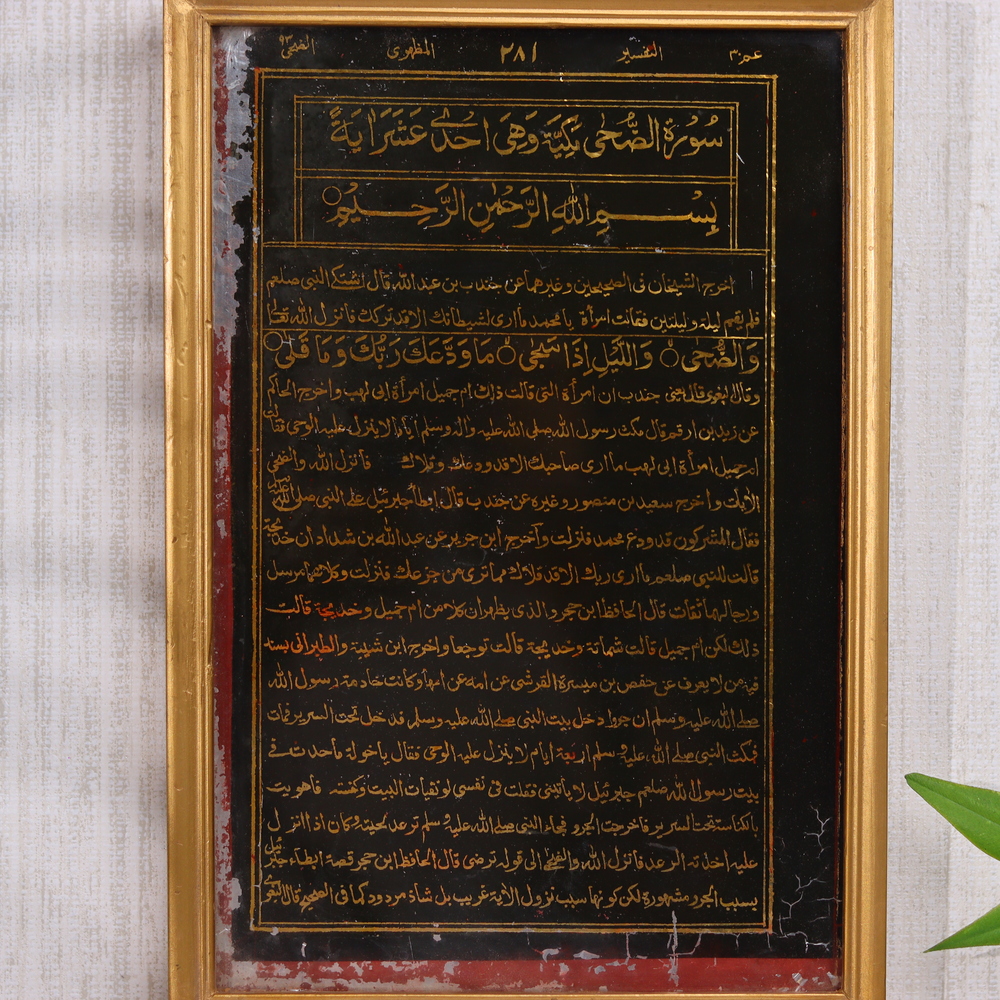 عم ٣٠ التفسير ٢٨١ المظهرى الضحى ٩٣
سُوْرَةُ الضُّحٰى مَكِّيَّة وَهِىَ اِحْدٰى عَشَرَ اٰيَةً
بِسْمِ اللّٰهِ الرَّحْمٰنِ الرَّحِيْمِ
اخرج الشيخان فى الصحيحين وغيرهما عن جندب بن عبد الله قال اشتكى النبى صلعم
فلم يقم ليلة وليلتين فقالت امرأة يا محمد ما ارى لشيطانك الا قد تركك فانزل الله تعالى
وَالضُّحٰى ۞ وَاللَّيْلِ اِذَا سَجٰى ۞ مَا وَدَّعَكَ رَبُّكَ وَمَا قَلٰى
وقال البغوى قال يعنى جندب ان امرأة التى قالت ذلك ام جميل امرأة ابى لهب واخرج الحاكم
عن زيد بن ارقم قال مكث رسول الله صلى الله عليه واله وسلم اياما لا ينزل عليه الوحى فقالت
ام جميل امرأة ابى لهب ما ارى صاحبك الا قد ودعك وقلاك فانزل الله والضحى
الايات واخرج سعيد بن منصور وغيره عن جندب قال ابطأ جبرئيل على النبى صلى الله عليه
فقال المشركون قد ودع محمد فنزلت وآخرج ابن جرير عن عبد الله بن شداد ان خديجة
قالت للنبى صلعم ما ارى ربك الا قد قلاك مما ترى من جزعك فنزلت وكلاهما مرسل
ورجالهما ثقات قال الحافظ ابن حجر والذى يظهر ان كلا من ام جميل وخديجة قالت
ذلك لكن ام جميل قالت شماتة وخديجة قالت توجعا واخرج ابن شيبة والطبرانى بسند
فيه من لا يعرف عن حفص بن ميسرة القرشى عن امه عن امها وكانت خادمة رسول الله
صلى الله عليه وسلم ان جروا دخل بيت النبى صلى الله عليه وسلم فدخل تحت السرير فمات
فمكث النبى صلى الله عليه وسلم اربعة ايام لا ينزل عليه الوحى فقال يا خولة ما حدث فى
بيت رسول الله صلعم جبرئيل لا يأتينى فقلت فى نفسى لو نقيات البيت وكنسته فاهويت
بالكناسة تحت السرير فاخرجت الجرو فجاء النبى صلى الله عليه وسلم ترعد لحيته وكان اذا انزل
عليه اخذته الرعد فانزل الله والضحى الى قوله ترضى قال الحافظ ابن حجر قصة ابطاء جبرئيل
بسبب الجرو مشهورة لكن كونها سبب نزول الاية غريب بل شاذ مردود كما فى الصحيح قال البغوى